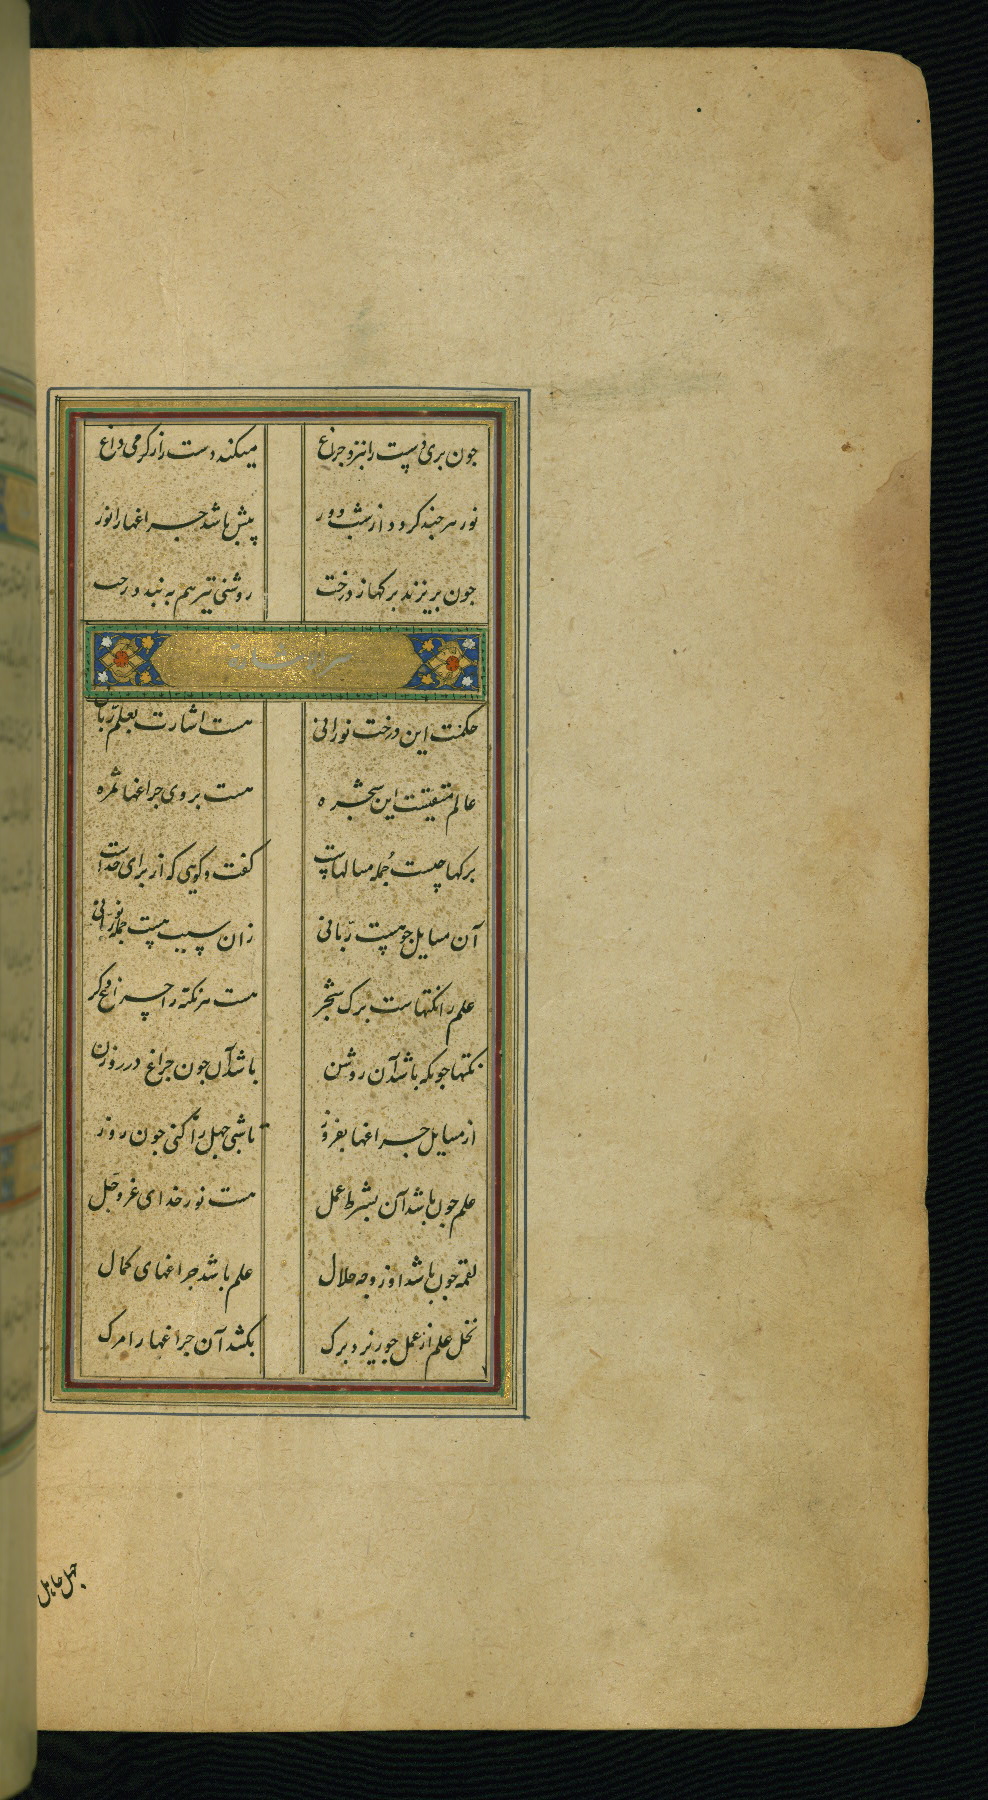 جون بری دست را بنزد جراغ میکند دست را ز کرمی داغ
نور هرجند کردد از شب دور پیش باشد جراغها را نور
جون بریزند برکها ز درخت روشنی تیر هم به بندد رخت
سر اشارت
حکمت این درخت نورانی هست اشارت بعلم ربانی
عالم متقیست این شجره هست بروی جراغها ثمره
برکها چیست جمله مسالهاست کفت و کویی که از برای خداست
آن مسایل جو هست ربانی زان سبب هست جمله نورانی
علم را نکتهاست برک شجر هست هر نکته را جراغ دکر
نکتها جونکه باشد آن روشن باشد آن جون جراغ در روزن
از مسایل جراغها بفروز تا شب جهل را کنی جون روز
علم جون باشد آن بشرط عمل هست نور خدای عز و جل
لقمه جون باشد از وجه حلال علم باشد جراغهای کمال
نخل علم از عمل جو ریزد برک بکشد آن جراغها را مرک
جهل جاهل